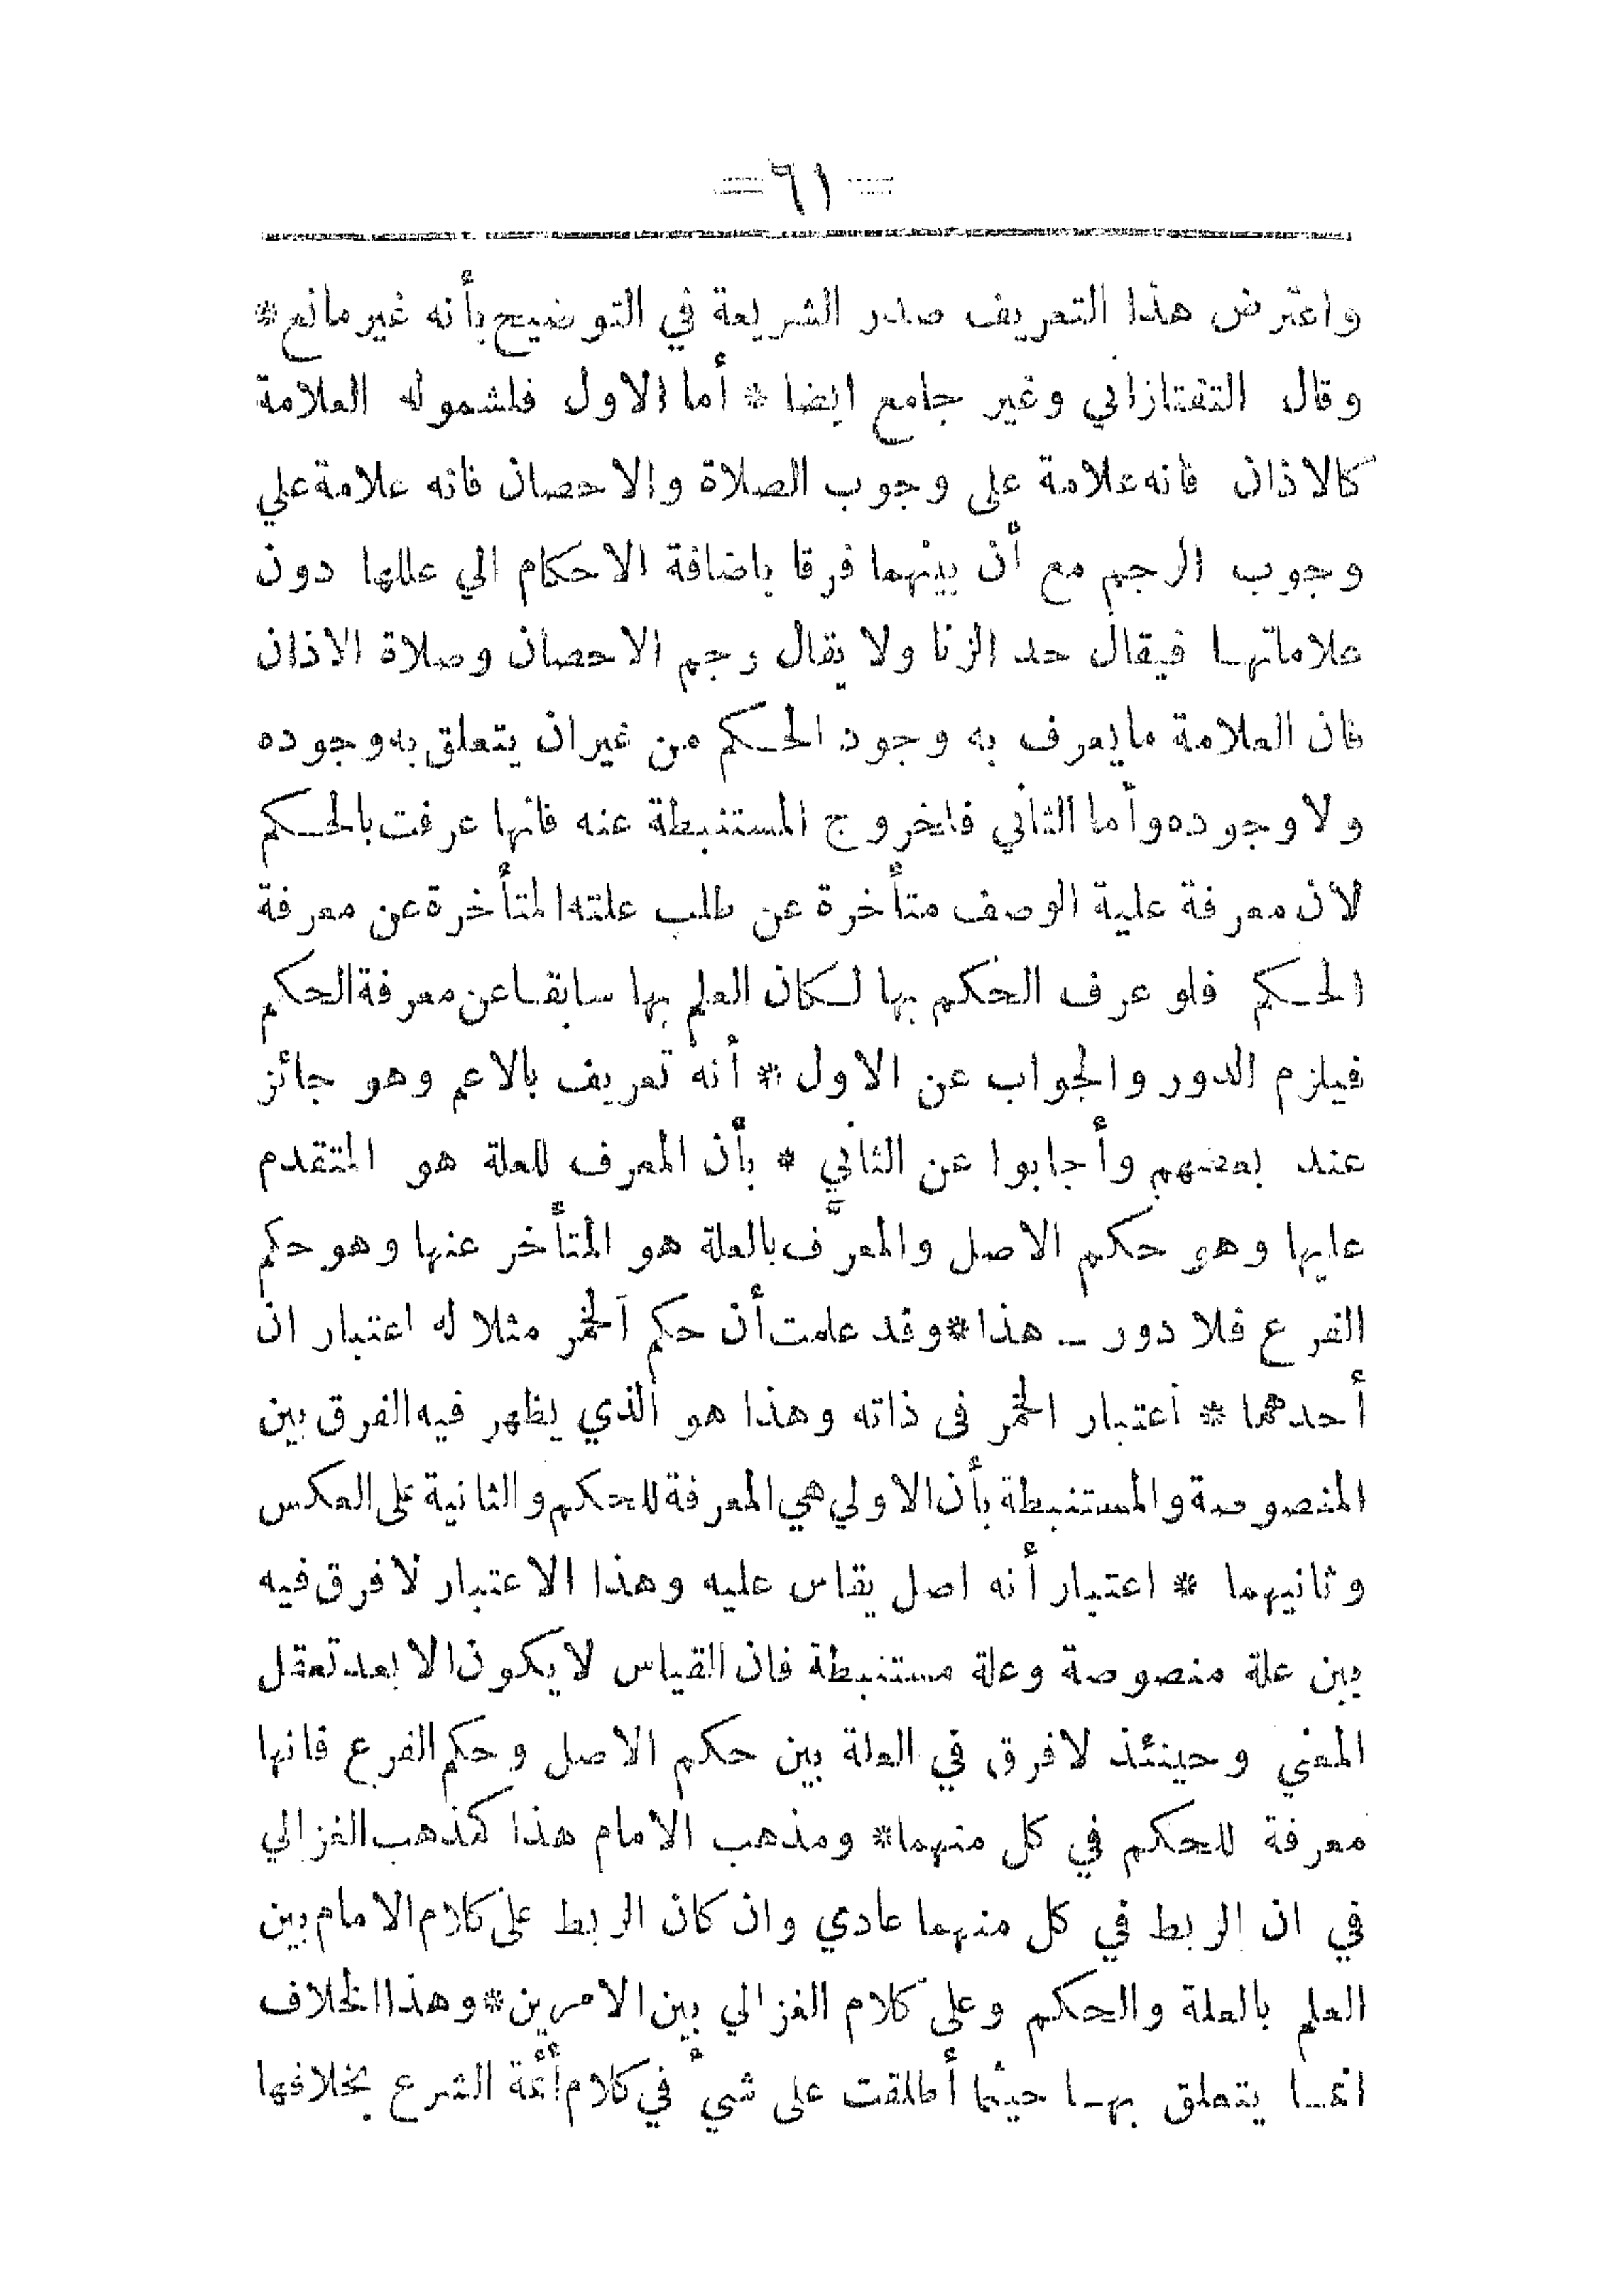 =٦١=
واعترض هذا التعريف صدر الشريعة في التوضيح بأنه غير مانع*
وقال التفتازاني وغير جامع ايضا * أما الاول فلشموله العلامة
كالاذان فانه علامة على وجوب الصلاة والاحصان فانه علامة علي
وجوب الرجم مع أن بينهما فرقا باضافة الاحكام الي عللها دون
علاماتها فيقال حد الزنا ولا يقال رجم الاحصان وصلاة الاذان
فان العلامة ما يعرف به وجود الحكم من غير ان يتعلق به وجوده
ولا وجوده وأما الثاني فلخروج المستنبطة عنه فانها عرفت بالحكم
لان معرفة علية الوصف متأخرة عن طلب علته المتأخرة عن معرفة
الحكم فلو عرف الحكم بها لكان العلم بها سابقا عن معرفة الحكم
فيلزم الدور والجواب عن الاول * أنه تعريف بالاعم وهو جائز
عند بعضهم وأجابوا عن الثاني * بأن المعرف للعلة هو المتقدم
عليها وهو حكم الاصل والمعرَّف بالعلة هو المتأخر عنها وهو حكم
الفرع فلا دور ـ هذا * وقد علمت أن حكم الخمر مثلا له اعتبار ان
أحدهما * اعتبار الخمر فى ذاته وهذا هو الذي يظهر فيه الفرق بين
المنصوصة والمستنبطة بأن الاولي هي المعرفة للحكم والثانية على العكس
وثانيهما * اعتبار أنه اصل يقاس عليه وهذا الاعتبار لا فرق فيه
بين علة منصوصة وعلة مستنبطة فان القياس لا يكون الا بعد تعقل
المعني وحينئذ لا فرق في العلة بين حكم الاصل وحكم الفرع فانها
معرفة للحكم في كل منهما * ومذهب الامام هذا كمذهب الغزالي
في ان الربط في كل منهما عادي وان كان الربط على كلام الامام بين
العلم بالعلة والحكم وعلى كلام الغزالي بين الامرين * وهذا الخلاف
انما يتعلق بها حيثما أطلقت على شيء في كلام أئمة الشرع بخلافها